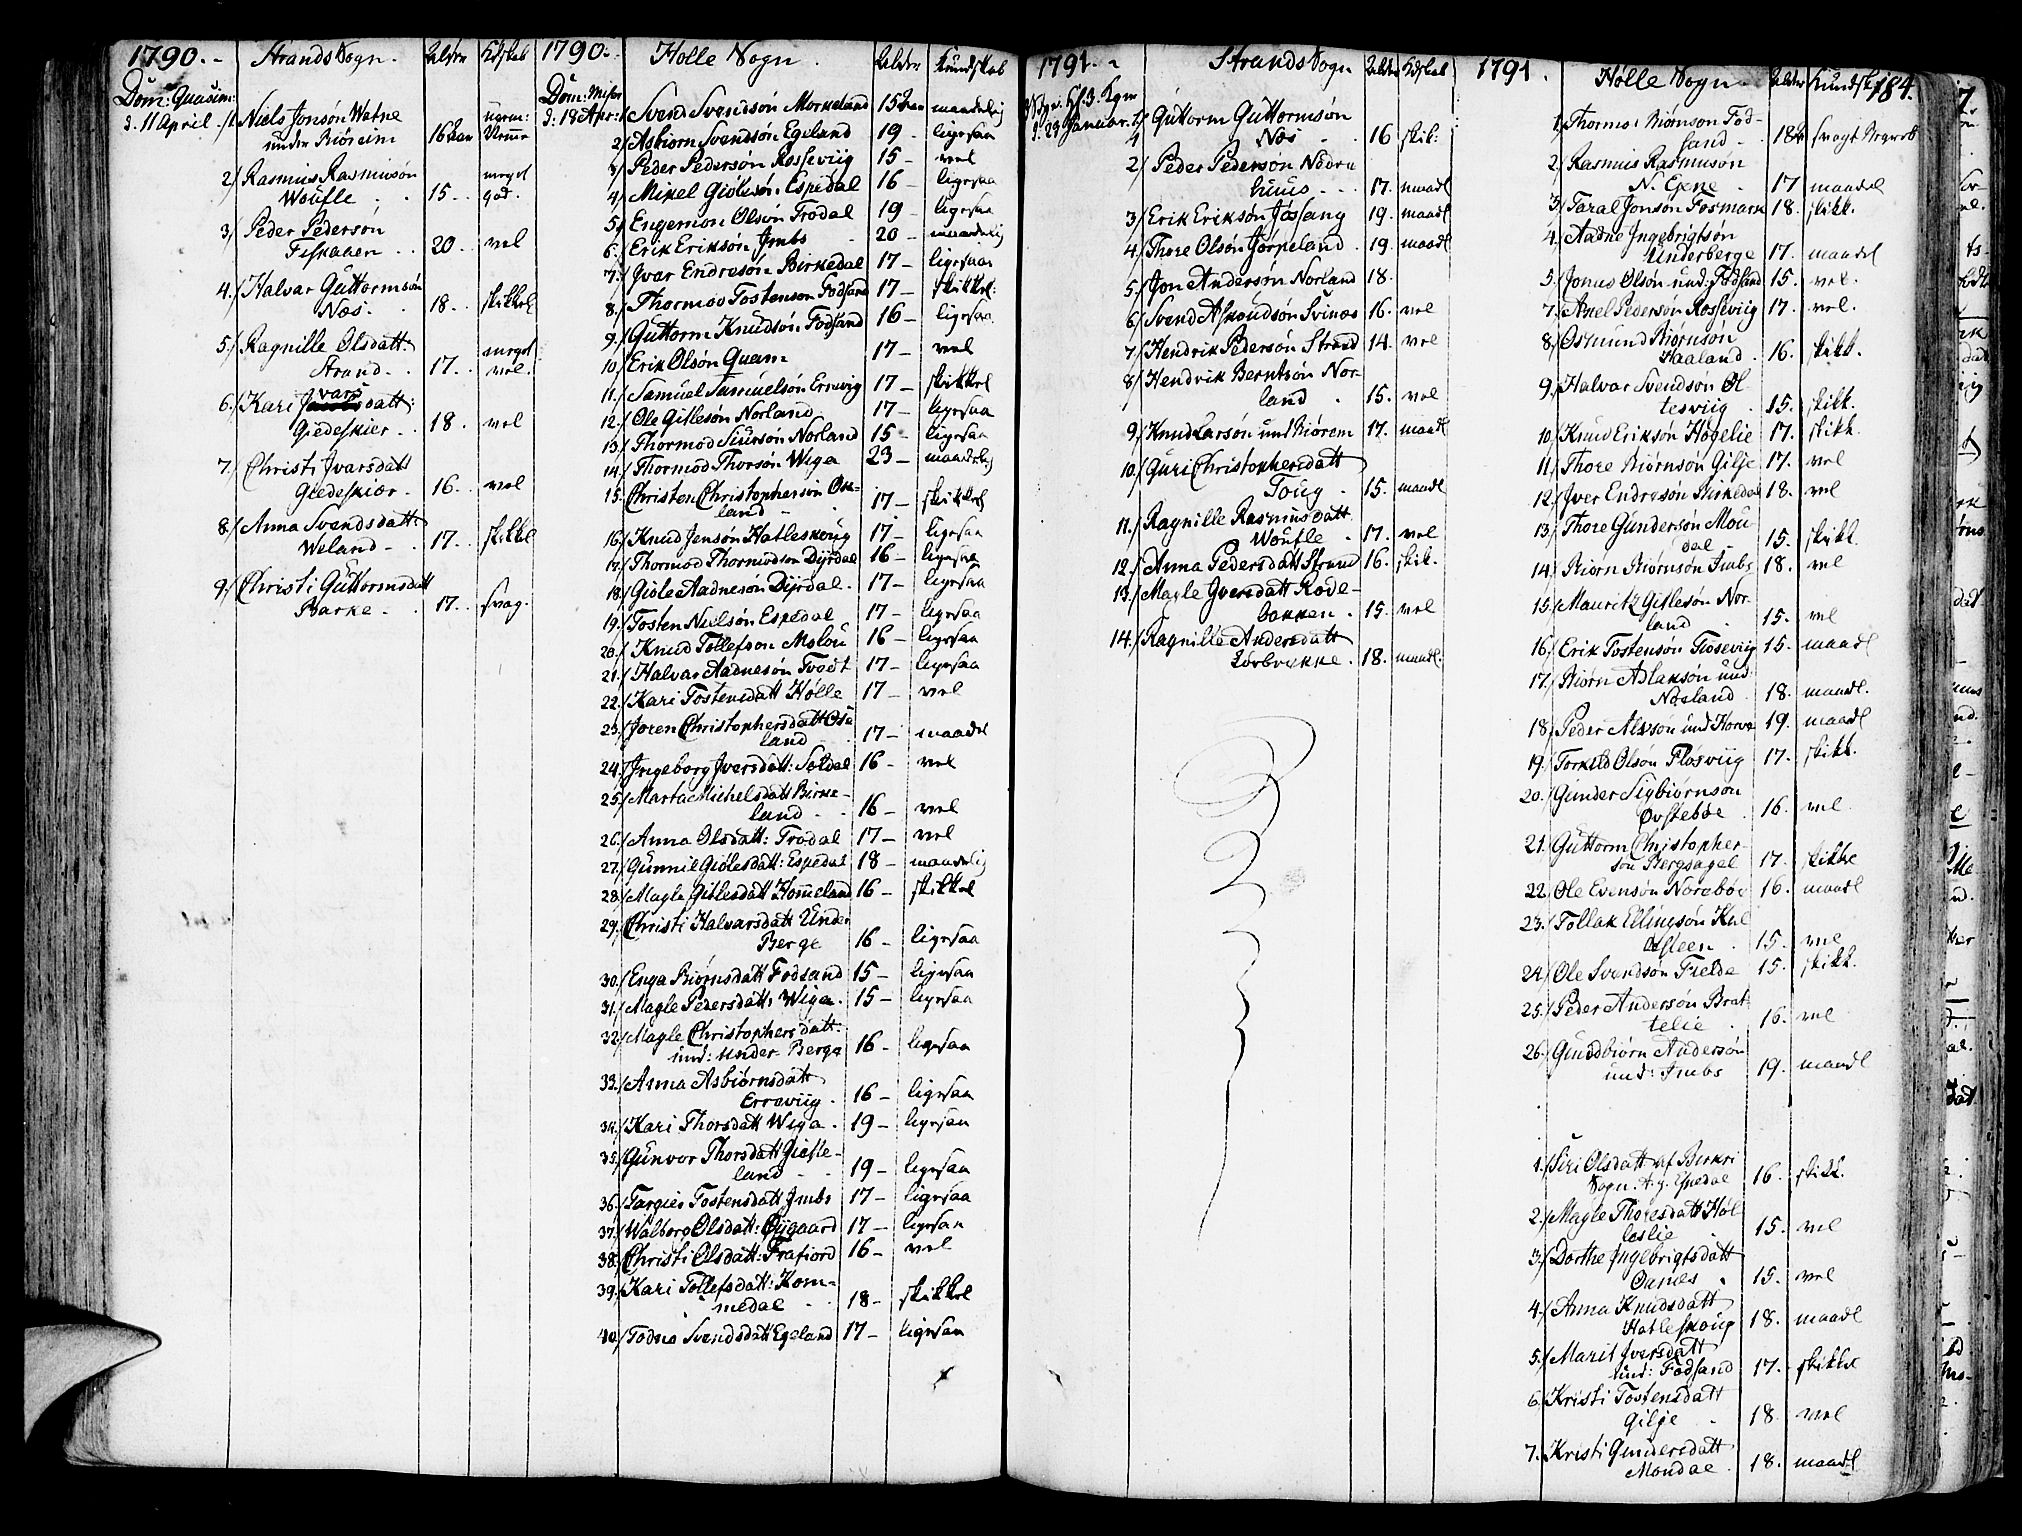 1790.
Strands Sogn.
Alder
Kdskab
Dom: Quasim:
d. 11 April.
1/ Niels Jonsön Watne
under Biöreim
16 Aar
2/ Rasmus Rasmusön
Woufle
15
meget
god.
3/ Peder Pedersön
Fiskaaen
20
vel
4/ Halvar Guttormsön
Næs
18
skikkel
5/ Ragnille Olsdatt:
Strand
17
meget
vel
6/ Kari Jvarsdatt:
Giedeskier
18
vel
7/ Christi Jvarsdatt
Giedeskiær
16
vel
8/ Anna Svendsdatt:
Weland
17
skikkel
9/ Christi Guttormsdatt
Barke
17
svag
1790
Holle Sogn.
Alder
Kundskab
Dom: Miser
d: 18 Apr:
1/ Svend Svendsön Morkeland 15 Aar maadelig
2/ Asbiorn Svendsön Egeland 19 ligesaa
3/ Peder Pedersön Rosseviig 15 vel
4/ Mikel Giölesön Espedal 16 ligesaa
5/ Engemon Olsön Frodal 19 ligesaa
6/ Erik Eriksön Jmbs 20 maadelig
7/ Jvar Endresön Birkedal 17 ligesaa
8/ Thormod Tostensön Fodsand 17 skikkel:
9/ Guttorm Knudsön Fodsand 16 ligesaa
10/ Erik Olsön Quam 17 vel
11/ Samuel Samuelsön Erevig 17 skikkel
12/ Ole Gitlesön Norland 17 ligesaa
13/ Thormod Siursön Norland 15 ligesaa
14/ Thormod Thorsön Wiga 23 maadelig
15. Christen Christophersön Oske-
land 17 skikkel
16/ Knud Jensön Hatleskoug 17 ligesaa
17. Thormod Thormodsön Dyrdal 16 ligesaa
18. Giöle Aadnesön Dijrdal 17 ligesaa
19. Tosten Nielsön Espedal 17 ligesaa
20. Knud Tollefsön Molou 16 ligesaa
21. Halvar Aadnesön Tvedt 17 ligesaa
22. Kari Tostensdatt Hölle 17 vel
23. Joren Christophersdatt Oske
land 17 maadel
24. Jngeborg Jversdatt: Seldal 16 vel
25. Marta Michelsdatt Birke-
land 16 vel
26. Anna Olsdatt: Frodal 17 vel
27. Gunnil Giölesdatt: Espedal 18 maadelig
28. Magle Gitlesdatt Hommeland 16 skikkel
29. Christi Halvarsdatt Under
Berge 16 ligesaa
30. Enga Biörnsdatt Fodsand 15 ligesaa
31. Magle Pedersdatt: Wiga 15 ligesaa
32. Magle Christophersdatt:
und: under Berge 16 ligesaa
33. Anna Asbiörnsdatt
Erreviig 16 ligesaa
34. Kari Thorsdatt Wiga 19 ligesaa
35. Gunvor Thorsdatt Giesle-
land 19 ligesaa
36. Targier Tostensdatt Jmbs 17 ligesaa
37. Walborg Olsdatt: Öijgaard 17 ligesaa
38. Christi Olsdatt: Frafiord 16 vel
39. Kari Tollefsdatt: Kom-
medal 18 skikkel
40/ Todne Svendsdatt Egeland 17 ligesaa
1791.
Strands Sogn
Alder
Kdskab
d. 23 Januar.
1/ Guttorm Guttormsön
Næs 16 skik:
2/ Peder Pedersön Nödre
huus 17. maadl
3/ Erik Eriksön Jössang 19. maadl
4/ Thore Olsön Jörpeland 19. maadl
5/ Jon Andersön Norland 18.
6/ Svend Askoudsön Svines 16. vel
7/ Hendrik Pedersön Strand 14. vel
8/ Hendrik Berntsön Nor-
land 15. vel
9/ Knud Larsön und Biörem 17. maadl
10/ Guri Christophersdatt
Toug 15. maadl
11. Ragnille Rasmusdatt
Woufle 17. vel
12. Anna Pedersdatt Strand 16. skik.
13. Magle Jversdatt Rode-
bakken 15. vel
14. Ragnille Andersdatt
Lörbrekke 18. maadl.
1791.
Hölle Sogn
Alder
Kundsk
184.
1. Thormo: Biörnson Fod-
sand 18
2. Rasmus Rasmusön
N. Eene 17 maadel
3. Taral Jonsön Fosmark 18. skikk.
4. Aadne Jngebrigtsön
Underberge 17. maadel
5. Jonas Olsön und: Fodsand 15. vel.
7. Axel Pedersön Rosseviig 17. vel.
8. Osmund Biörnsön
Haaland 16. skikk.
9. Halvar Svendsön Ol
tesviig 15. skikk.
10. Knud Eriksön Högelie 17. skikk.
11. Thore Biörnsön Gilje 17. vel
12. Jver Endresön Birkedal 18. vel
13. Thore Gundersön Mou
dal 15. skikk.
14. Biörn Biörnsön Jmbs 18. vel
15. Mauritz Gitlesön Nor-
land 15. vel
16. Erik Tostensön Fioseviig 15. maadl
17. Biörn Aslaksön und
Nesland 18. maadl.
18 Peder Alxsön und Horve 19. maadl
19. Torkild Olsön Flösviig 17. skikk.
20. Gunder Sigbiörnsön
Övstebøe 16. vel
21. Guttorm Christopher-
sön Bergsagel 17. skikke
22. Ole Evensön Noreböe 16. maadl
23. Tollak Ellingsön Hal
Asteen 15. vel
24. Ole Svendsön Fielde 15. skikk.
25. Peder Andersön Brat
telie 16. vel
26. Gundbiörn Andersön
und: Jmbs 19. maadl
1. Siri Olsdatt af Birkri
Sogn. t.j. Espedal 16. skikk.
2. Magle Thoresdatt Höl
leslie 15. vel
3. Dorthe Jngebrigtsdatt
Oanes 15. vel
4. Anna Knudsdatt
Hatleskoug 18. maadl
5. Marit Jversdatt
und: Fodsand 17. skikke
6. Kristi Tostensdatt
Gilje 18. vel
7. Kristi Gundersdatt
Moudal 18. maadl